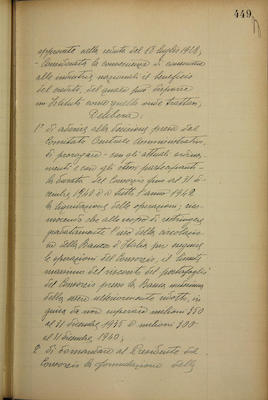 449
approvato nella seduta del 13 luglio 1928,
- Considerata la convenienza di consentire
alle industrie nazionali il beneficio
del credito, del quale può disporre
un Istituto come quello onde trattasi,
Delibera:
1° di aderire alla decisione presa dal
Comitato Centrale Amministrativo,
di prorogare - con gli attuali
e con gli stessi partecipanti -
la durata del Consorzio fino al 31 di-
cembre 1940 e a tutto l'anno 1942
la liquidazione delle operazioni; rico-
noscendo che allo scopo di restringere
gradatamente l'uso della circolazio-
ne della Banca d'Italia per eseguire
le operazioni del Consorzio, il limite
massimo del risconto del portafoglio
del Consorzio presso la Banca
debba essere ulteriormente ridotto, in
guisa da non superare milioni 750
al 31 dicembre 1935 e milioni 300
al 31 dicembre 1940;
2° di domandare al Presidente del
Consorzio la formulazione delle